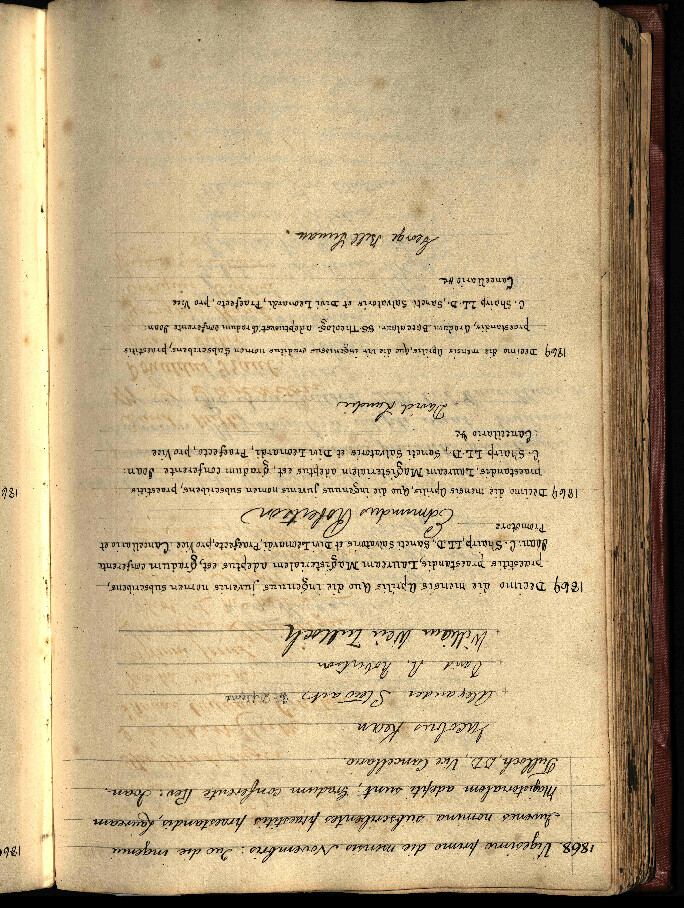 1868 Vigesimo primo die mensis Novembris: Quo die ingenui
Juvenes nomina subscribentes praestitis praestandis, Lauream
Magisterialem adepti sunt; Gradum conferente Rev: Joan.
Tulloch, D.D, Vice Cancellario
Jacobus Kean
+ Alexander Stewart
+ David R. Robertson
+ William Weir Tulloch
1869 Decimo die mensis Aprilis Quo die ingenuus juvenis nomen subscribens,
praestitis praestandis, Lauream Magisterialem adeptus est, gradum conferente
Joan. C. Shairp, LL.D., Sancti Salvatoris et Divi Leonardi, Praefecto, pro Vice Cancellario et
Promotore
Edmundus Robertson
1869 Decimo die mensis Aprilis, Quo die ingenuus juvenis nomen subscribens, praestitis
praestandis, Lauream Magisterialem adeptus est, gradum conferente Joan:
C. Shairp LL.D., Sancti Salvatoris et Divi Leonardi, Praefecto, pro Vice
Cancellario &c
David
1869 Decimo die mensis Aprilis, quo die vir ingenuus eruditus nomen subscribens, praestitis
praestandis, Gradum Baccalaur. SS Theolog: adeptus est, Gradum conferente Joan:
C. Shairp LL.D., Sancti Salvatoris et Divi Leonardi, Praefecto, pro Vice
Cancellario &c
George Bell
186
186